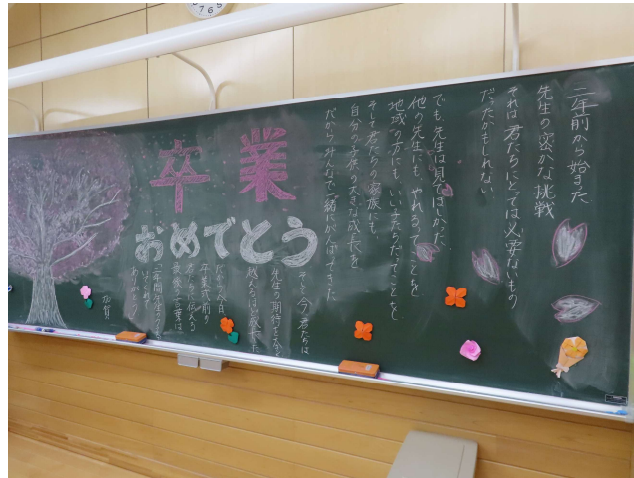 卒業
おめでとう
二年前から始まった
先生の密かな挑戦
それは君たちにとっては必要ないもの
だったかもしれない
でも、先生は見てほしかった
他の先生にも やれるってことを
地域の方にも いい子たちだってことを
そして君たちの家族にも
自分の子供の大きな成長を
だからみんなで一緒にがんばってきた
そして今 君たちは
先生の期待を大きく
越えるほど成長した
だから今日
卒業式前の
君たちに伝える
最後の言葉は
二年間先生の
ありがとう